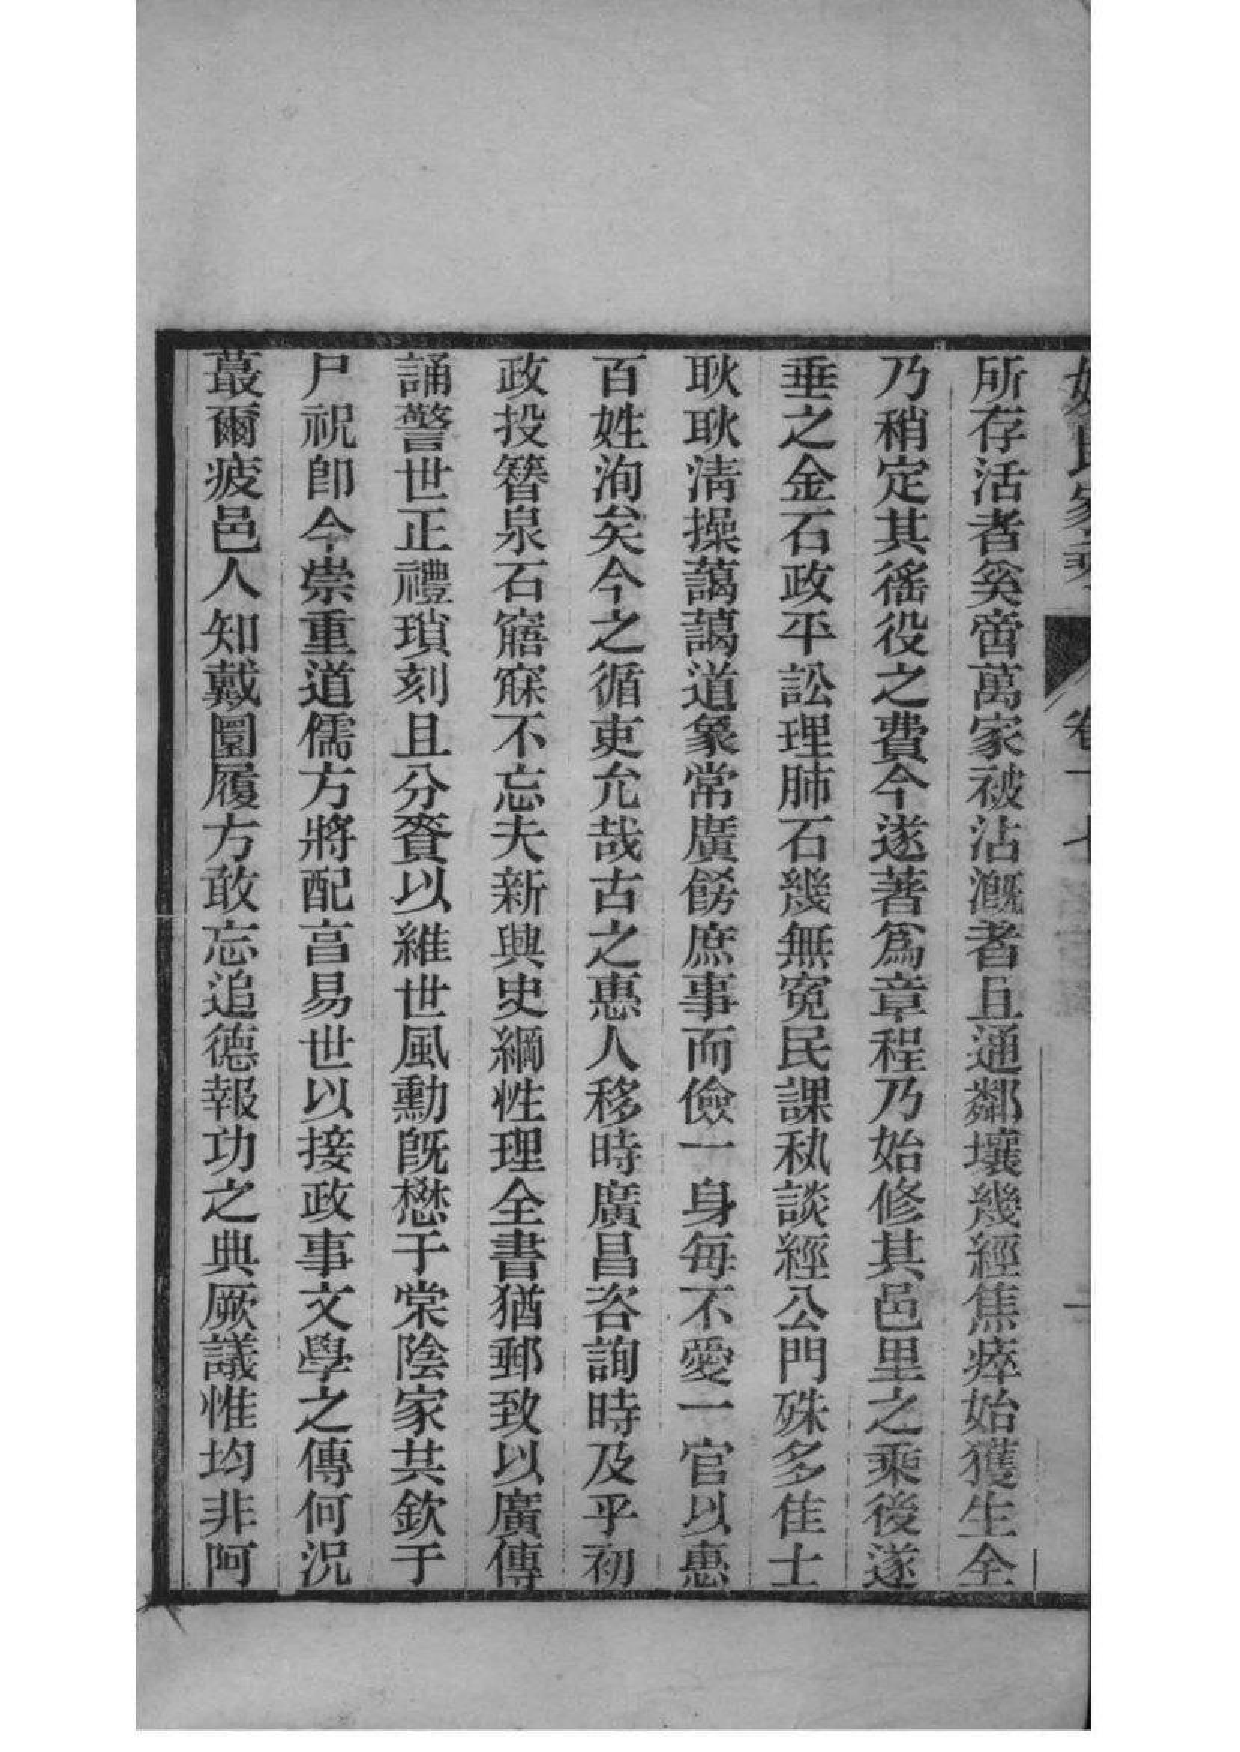 卷十七
一
所存活者奚啻萬家被沾溉者且通鄰壤幾經焦瘁始獲生全
乃稍定其徭役之費今遂著爲章程乃始修其邑里之乘後遂
垂之金石政平訟理肺石幾無寃民課秇談經公門殊多佳士
耿耿淸操藹藹道象常廣餝庶事而儉一身每不愛一官以惠
百姓洵矣今之循吏允哉古之惠人移時廣昌咨詢時及乎初
政投簪泉石寤寐不忘夫新與史綱性理全書猶郵致以廣傳
誦警世正禮瑣刻且分賚以維世風勳旣懋于棠陰家共欽于
尸祝卽今崇重道儒方將配亯易世以接政事文學之傳何況
蕞爾疲邑人知戴圜履方敢忘追德報功之典厥議惟均非阿